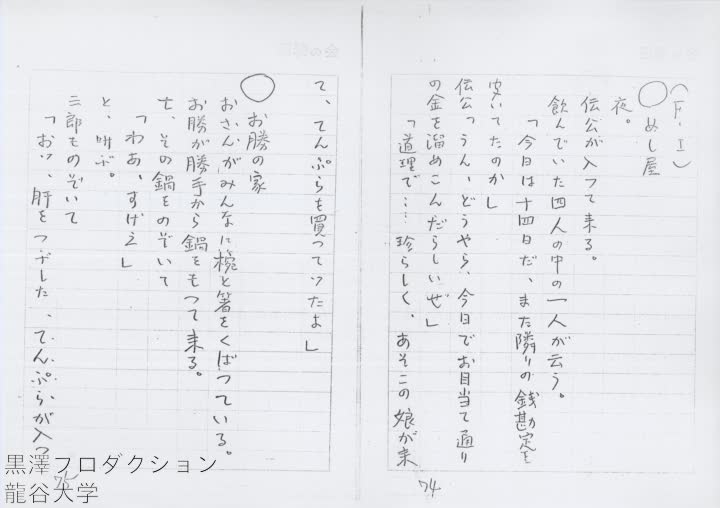 (F・I)
○めし屋
夜。
伝公が入って来る。
飲んでいた四人の中の一人が云う。
「今日は十四日だ、また隣りの銭勘定を
覗いてたのか」
伝公「うん、どうやら、今日でお目当て通り
の金を溜めこんだらしいぜ」
「道理で……珍らしく、あそこの娘が来
74
て、てんぷらを買っていったよ」
○お勝の家
おさんがみんなに椀と箸をくばっている。
お勝が勝手から鍋をもって来る。
七、その鍋をのぞいて
「わあ、すげえ」
と、叫ぶ。
三郎ものぞいて
「おッ、肝をつぶした、てんぷらが入つ
75
黒澤プロダクション
龍谷大学